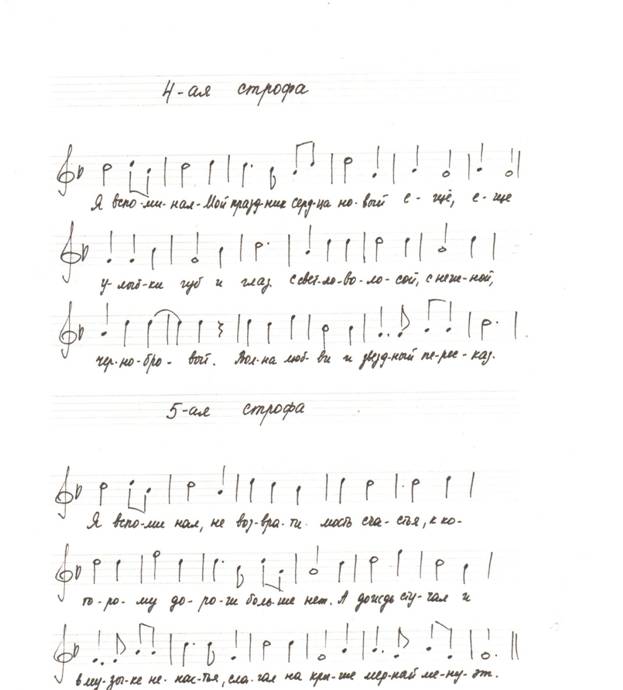 4-ая строфа
Я вспо-ми-нал-Мой празд-ник серд-ца но-вый е-щё, е-ще
у-лыб-ки губ и глаз. С свет-ло-во-ло-сой, с неж-ной,
чер-но-бро-вой. Вол-на люб-ви и звезд-ный пе-рес-каз.
5-ая строфа
Я вспо-ми нал, не воз-вра-ти-мость сча-стья, к ко-
то-ро-му до-ро-ги боль-ше нет. А дождь сту-чал и
в му-зы-ке не-нас-тья, сла-гал на кры-ше мер-ный ме-ну-эт.